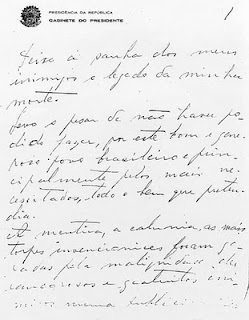 PRESIDÊNCIA DA REPÚBLICA
GABINETE DO PRESIDENTE
1
Deixo à sanha dos meus
inimigos o legado da minha
morte.
Levo o pesar de não haver po-
dido fazer, por este bom e gene-
roso povo brasileiro e prin-
cipalmente pelos mais ne-
cessitados, todo o bem que preten-
dia.
A mentira, a calunia, as mais
torpes invencionices foram ge-
radas pela malignidade de
rancorosos e gratuitos ini-
migos numa publici